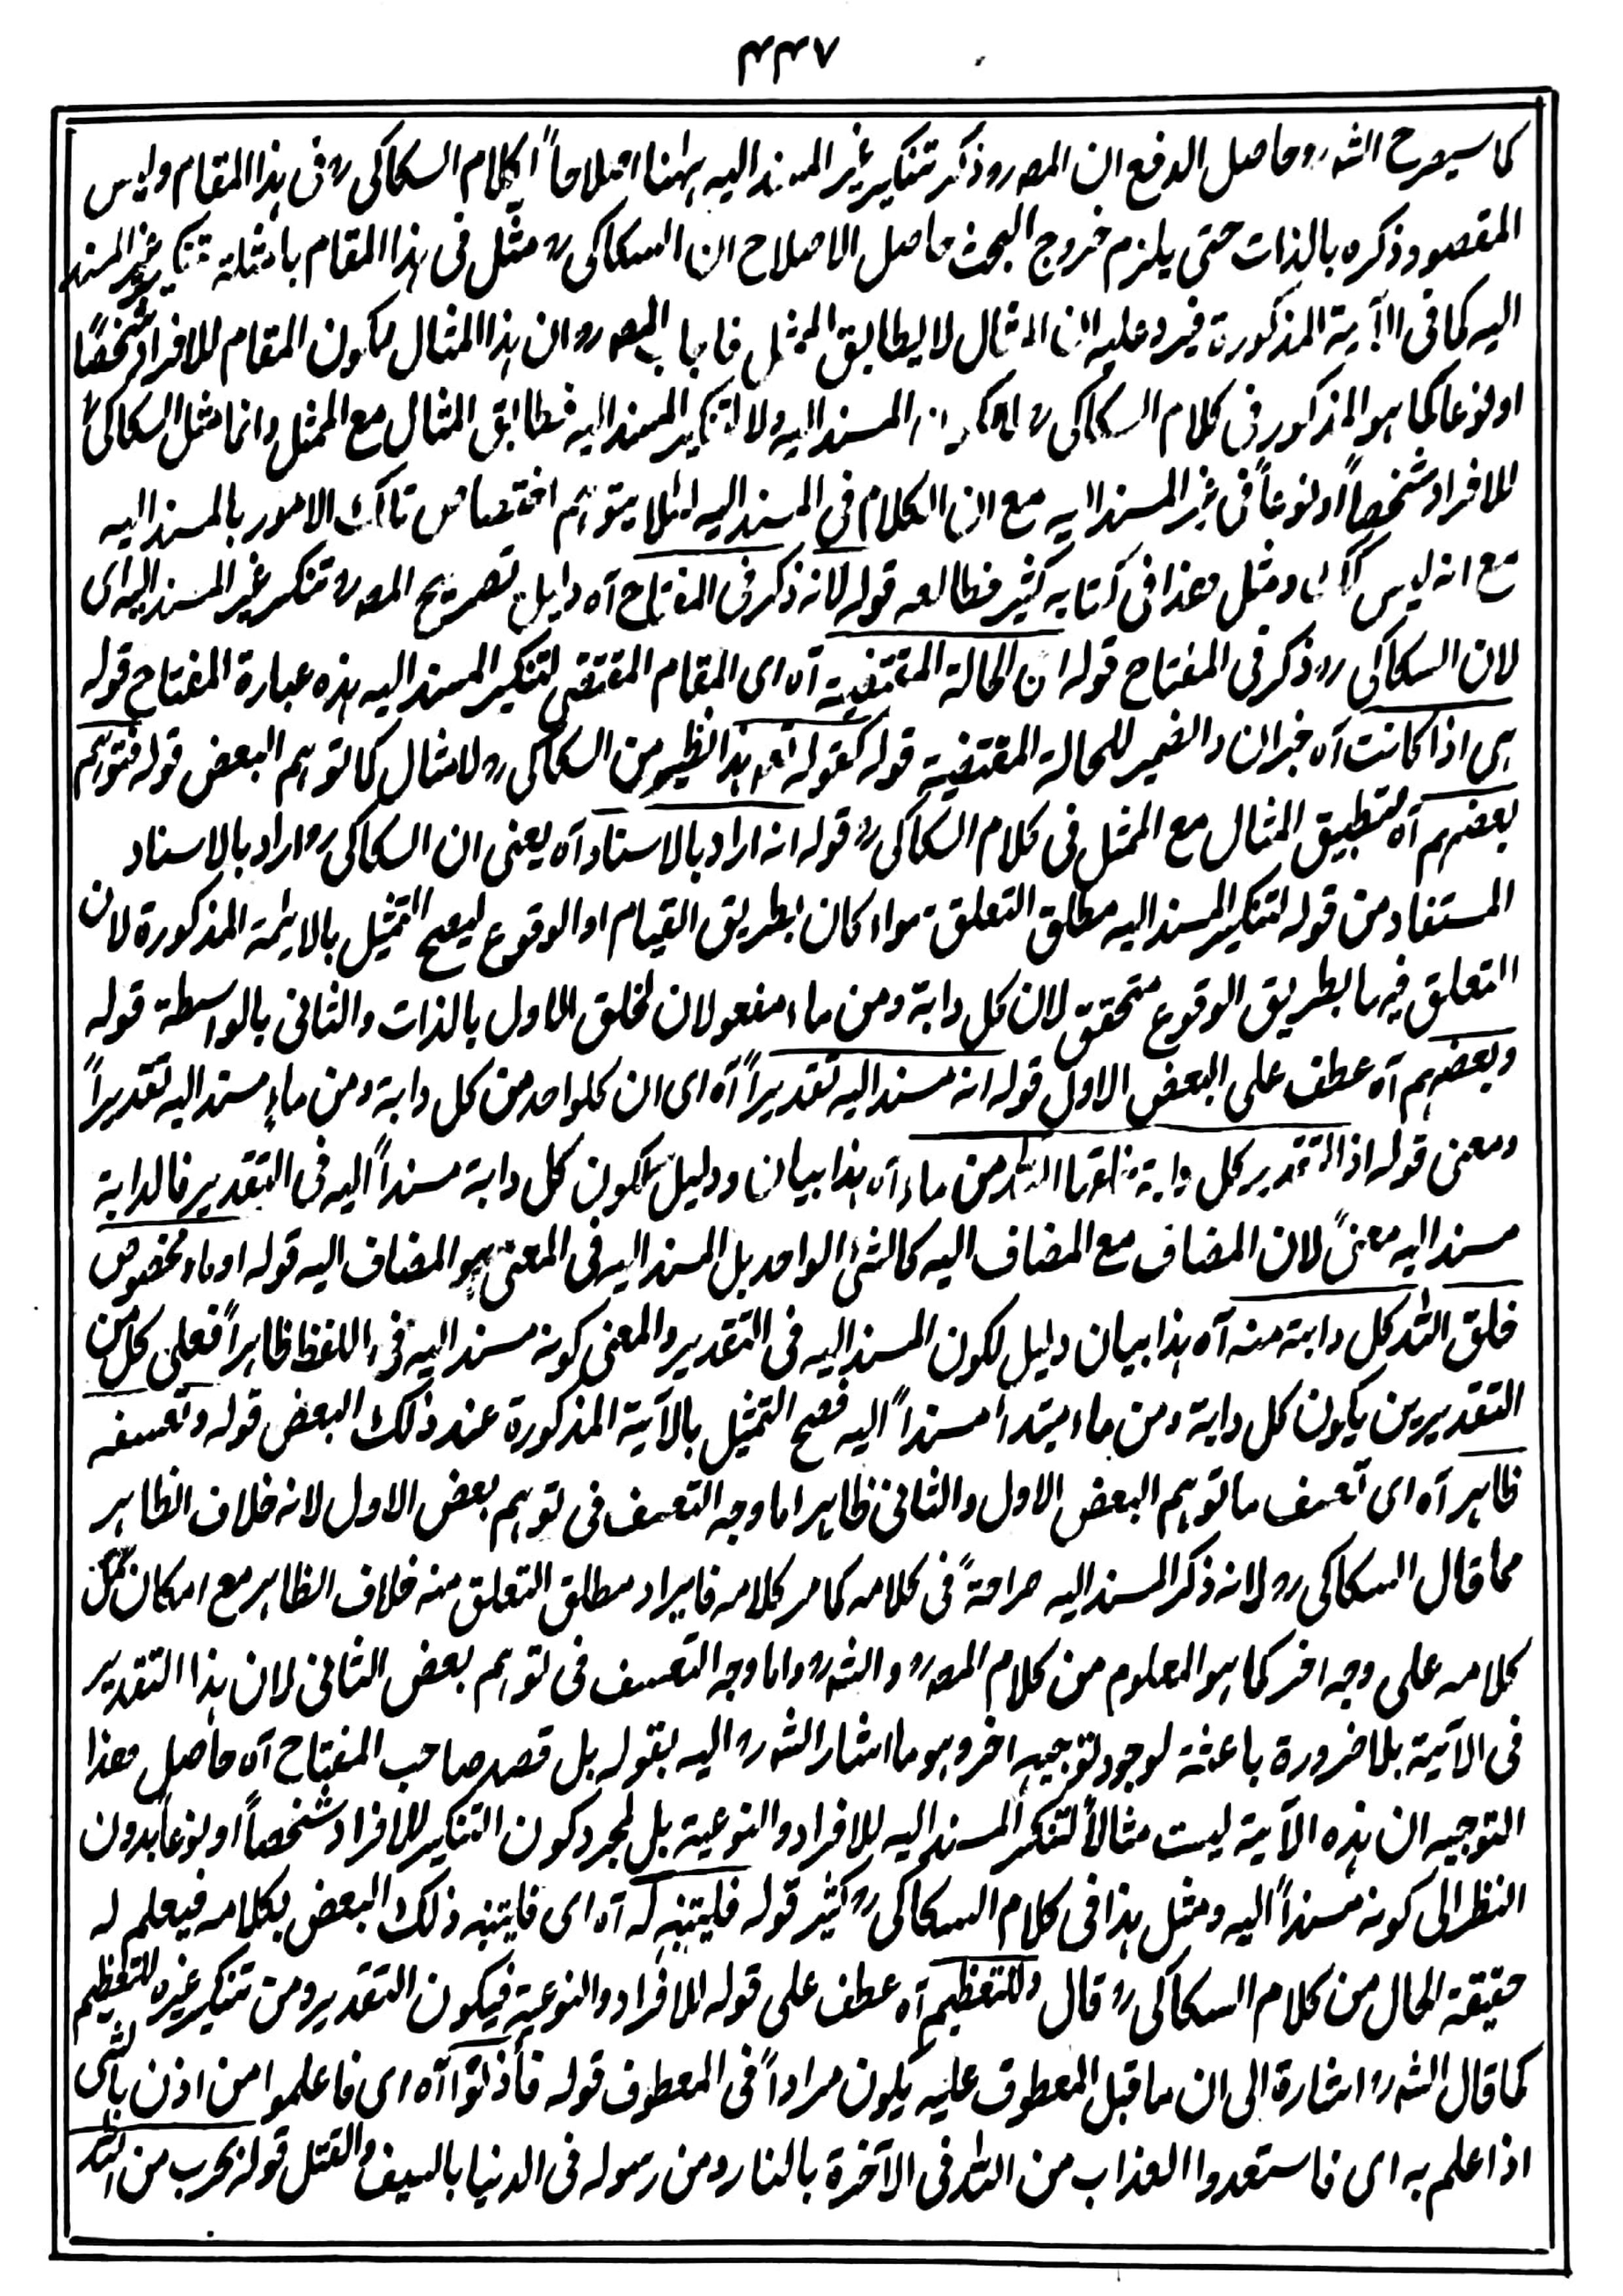 ۴۴۷
كما سيصرح الشه رو حاصل الدفع ان المصه رو ذكر تنكير غير المسند اليه ههنا اصلاحاً لكلام السكاكى رو فى هذا المقام وليس
المقصود ذكره بالذات حتى يلزم خروج البحث حاصل الاصلاح ان السكاكى رو مثل فى هذا المقام بامثلة تنكير غير المسند
اليه كما فى الآية المذكورة فيرد عليه ان المثال لا يطابق الممثل فاجاب المصه رو ان هذا المثال لكون المقام للافراد شخصًا
او نوعا كما هو المذكور فى كلام السكاكى رو المسند اليه ولا لتنكير المسند اليه فطابق المثال مع الممثل وانما مثل السكاكى رو
للافراد شخصاً او نوعاً فى غير المسند اليه مع ان الكلام فى المسند اليه لئلا يتوهم اختصاص تلك الامور بالمسند اليه
مع انه ليس كك ومثل هذا فى كتابه كثير فطالعه قوله لانه ذكر فى المفتاح آه دليل تصريح المصه رو تنكير غير المسند اليه اى
لان السكاكى رو ذكر فى المفتاح قوله ان الحالة المقتضية آه اى المقام المقتضى لتنكير المسند اليه هذه عبارة المفتاح قوله
هى اذا كانت آه خبر ان والضمير للحالة المقتضية قوله كقوله تعه هذا نظير من السكاكى رو لا مثال كما توهم البعض قوله فتوهم
بعضهم آه لتطبيق المثال مع الممثل فى كلام السكاكى رو قوله انه اراد بالاسناد آه يعنى ان السكاكى رو اراد بالاسناد
المستفاد من قوله لتنكير المسند اليه مطلق التعلق سواء كان بطريق القيام او الوقوع ليصح التمثيل بالاية المذكورة لان
التعلق فيهما بطريق الوقوع متحقق لان كل دابة ومن ماء مفعولان لخلق الاول بالذات والثانى بالواسطة قوله
وبعضهم آه عطف على البعض الاول قوله انه مسند اليه تقديراً آه اى ان كلواحد من كل دابة ومن ماء مسند اليه تقديراً
ومعنى قوله اذ التقدير كل دابة خلقها الله من ماء آه هذا بيان ودليل لكون كل دابة مسنداً اليه فى التقدير فالدابة
مسند اليه معنىً لان المضاف مع المضاف اليه كالشئ الواحد بل المسند اليه فى المعنى هو المضاف اليه قوله او ماء مخصوص
خلق الله كل دابة منه آه هذا بيان دليل لكون المسند اليه فى التقدير والمعنى كونه مسند اليه فى اللفظ ظاهراً فعلى كل من
التقديرين يكون كل دابة ومن ماء مبتدأ مسنداً اليه فصح التمثيل بالآية المذكورة عند ذلك البعض قوله وتعسفه
ظاهر آه اى تعسف ما توهم البعض الاول والثانى ظاهر اما وجه التعسف فى توهم بعض الاول لانه خلاف الظاهر
مما قال السكاكى رو لانه ذكر المسند اليه صراحةً فى كلامه كما مر كلامه فايراد مطلق التعلق منه خلاف الظاهر مع امكان حمل
كلامه على وجه اخر كما هو المعلوم من كلام المصه رو والشه رو واما وجه التعسف فى توهم بعض الثانى لان هذا التقدير
فى الآية بلا ضرورة باعثة لوجود توجيه اخر وهو ما اشار الشه رو اليه بقوله بل قصد صاحب المفتاح آه حاصل هذا
التوجيه ان هذه الآية ليست مثالاً لتنكير المسند اليه للافراد والنوعية بل لمجرد كون التنكير للافراد شخصاً او نوعاً بدون
النظر الى كونه مسنداً اليه ومثل هذا فى كلام السكاكى رو كثير قوله فليتنبه له آه اى فليتنبه ذلك البعض بكلامه فيعلم له
حقيقة الحال من كلام السكاكى رو قال وللتعظيم آه عطف على قوله للافراد والنوعية فيكون التقدير ومن تنكير غيره للتعظيم
كما قال الشه رو اشارة الى ان ما قبل المعطوف عليه يكون مراداً فى المعطوف قوله فأذنوا آه اى فاعلموا من اذن بالشئ
اذا علم به اى فاستعدوا العذاب من الله فى الآخرة بالنار ومن رسوله فى الدنيا بالسيف والقتل قوله بحرب من الله